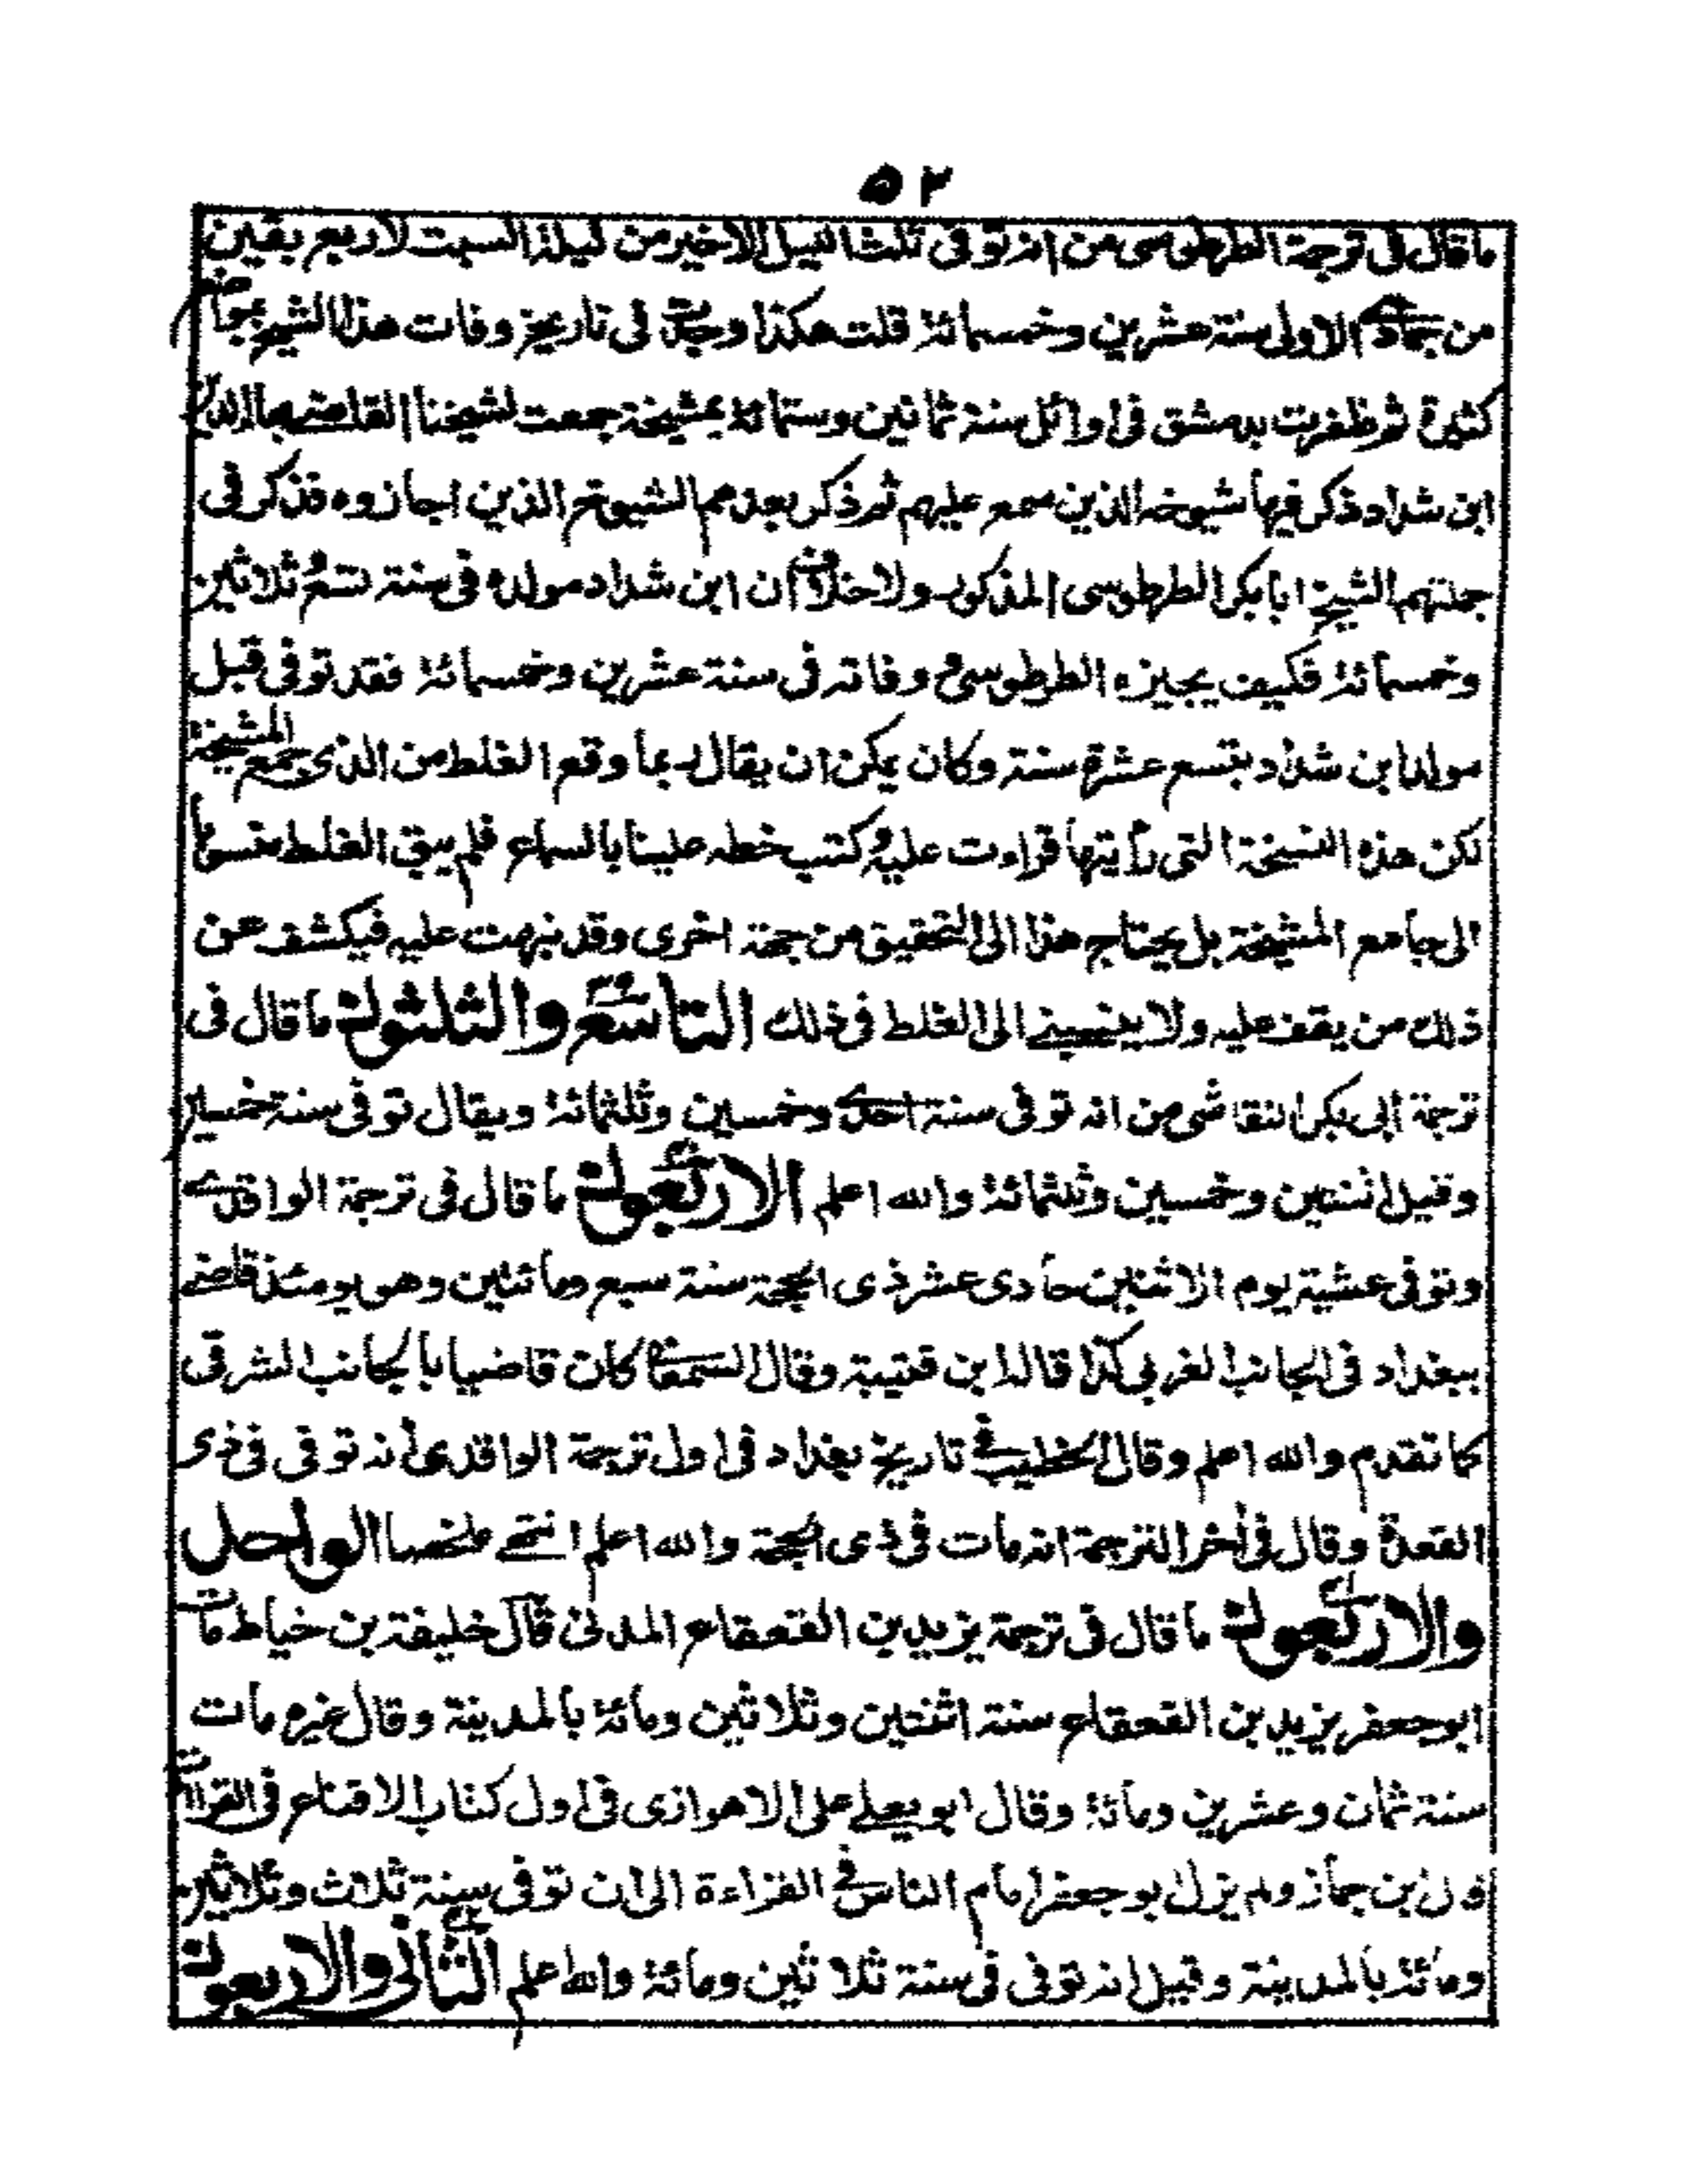 ٥٢
ما قال فى ترجمة الطرطوسى من انه توفى ثلث الليل الاخير من ليلة السبت لاربع بقين
من جمادى الاولى سنة عشرين وخمسمائة قلت هكذا وجدت فى تاريخ وفات هذا الشيخ بمواضع
كثيرة ثم ظفرت بدمشق فى اوائل سنة ثمانين وستمائة بمشيخة جمعت لشيخنا القاضى بهاء الدين
ابن شداد ذكر فيها شيوخه الذين سمع عليهم ثم ذكر بعدهم الشيوخ الذين اجازوه فذكر فى
جملتهم الشيخ ابا بكر الطرطوسى المذكور ولا خلاف ان ابن شداد مولده فى سنة تسع وثلاثين
وخمسمائة فكيف يجيزه الطرطوسى ووفاته فى سنة عشرين وخمسمائة فقد توفى قبل
مولد ابن شداد بتسع عشرة سنة وكان يمكن ان يقال ربما وقع الغلط من الذى جمع المشيخة
لكن هذه النسخة التى رأيتها قراءت عليه وكتب خطه علينا بالسماع فلم يبق الغلط منسوبا
الى جامع المشيخة بل يحتاج هذا الى التحقيق من جهة اخرى وقد نبهت عليه فيكشف عن
ذلك من يقف عليه ولا ينسبنى الى الغلط فى ذلك التاسع والثلثون ما قال فى
ترجمة ابى بكر النقاش من انه توفى سنة احدى وخمسين وثلثمائة ويقال توفى سنة خمسين
وقيل اثنتين وخمسين وثلثمائة والله اعلم الاربعون ما قال فى ترجمة الواقدى
وتوفى عشية يوم الاثنين حادى عشر ذى الحجة سنة سبع ومائتين وهو يومئذ قاضى
ببغداد فى الجانب الغربى كذا قاله ابن قتيبة وقال السمعانى كان قاضيا بالجانب الشرقى
كما تقدم والله اعلم وقال الخطيب فى تاريخ بغداد فى اول ترجمة الواقدى انه توفى فى ذى
القعدة وقال فى أخر الترجمة انه مات فى ذى الحجة والله اعلم انتهى ملخصا الواحد
والاربعون ما قال فى ترجمة يزيد بن القعقاع المدنى قال خليفة بن خياط مات
ابو جعفر يزيد بن القعقاع سنة اثنتين وثلاثين ومائة بالمدينة وقال غيره مات
سنة ثمان وعشرين ومائة وقال ابو يعلى على الاهوازى فى اول كتاب الاقناع فى القراآت
بن جماز ولم يزل ابو جعفر امام الناس فى القراءة الى ان توفى سنة ثلاث وثلاثين
ومائة بالمدينة وقيل انه توفى فى سنة ثلاثين ومائة والله اعلم الثانى والاربعون